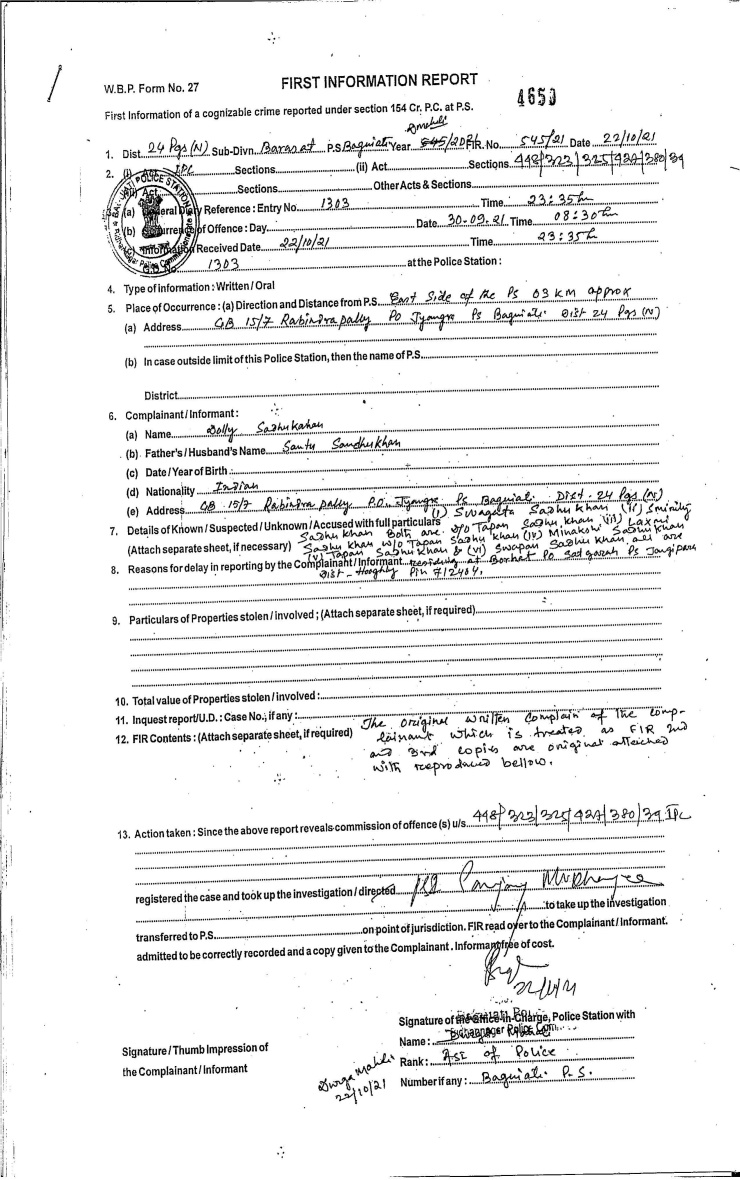 W.B.P. Form No. 27
FIRST INFORMATION REPORT
4650
First Information of a cognizable crime reported under section 154 Cr. P.C. at P.S.
1. Dist. 24 Pgs (N) Sub-Divn. Barasat P.S. Baguiati Year FIR. No. 545/21 Date 22/10/21
2. (i) Act IPC Sections (ii) Act Sections 448/323/325/427/380/34
(iii) Act Sections Other Acts & Sections
3. (a) General Diary Reference: Entry No. 1303 Time 23:35 hr
(b) Occurrence of Offence: Day Date 30-09-21 Time 08:30 hr
(c) Information Received Date 22/10/21 Time 23:35 h
G.D. No. 1303 at the Police Station :
4. Type of information : Written / Oral
5. Place of Occurrence : (a) Direction and Distance from P.S. East Side of the Ps 03 KM approx
(a) Address GB 15/7 Rabindra pally Po Jyangra Ps Baguiati Dist 24 Pgs (N)
(b) In case outside limit of this Police Station, then the name of P.S.
District
6. Complainant / Informant :
(a) Name Dolly Sadhukahan
(b) Father's / Husband's Name Santu Sandhukhan
(c) Date / Year of Birth :
(d) Nationality Indian
(e) Address GB 15/7 Rabindra pally P.O. Jyangra Ps Baguiati Dist - 24 Pgs (N)
7. Details of Known / Suspected / Unknown / Accused with full particulars (i) Swagata Sadhu khan (ii)
(Attach separate sheet, if necessary) Sadhu Khan Both are D/o Tapan Sadhu khan (iii) Laxmi
Sadhu khan w/o Tapan Sadhu khan (iv) Minakshi Sadhukhan
(v) Tapan Sadhu khan & (vi) Swapan Sadhu khan all are
8. Reasons for delay in reporting by the Complainant / Informant residing at Borhat Po Satgarah Ps Jangipara
Dist - Hooghly Pin 712404.
9. Particulars of Properties stolen / involved ; (Attach separate sheet, if required)
10. Total value of Properties stolen / involved :
11. Inquest report / U.D. : Case No., if any :
12. FIR Contents : (Attach separate sheet, if required) The original written complain of the comp-
lainant which is treated as FIR 2nd
and 3rd copies are original attached
with reproduced bellow.
13. Action taken : Since the above report reveals commission of offence (s) u/s 448/323/325/427/380/34 IPC
registered the case and took up the investigation / directed
to take up the investigation
transferred to P.S. on point of jurisdiction. FIR read over to the Complainant / Informant.
admitted to be correctly recorded and a copy given to the Complainant. Informant free of cost.
22/10/21
Signature of the Office-in-Charge, Police Station with
Name :
Signature / Thumb Impression of
the Complainant / Informant
Durga Mahli
22/10/21
Rank : ASI of Police
Number if any : Baguiati P.S.